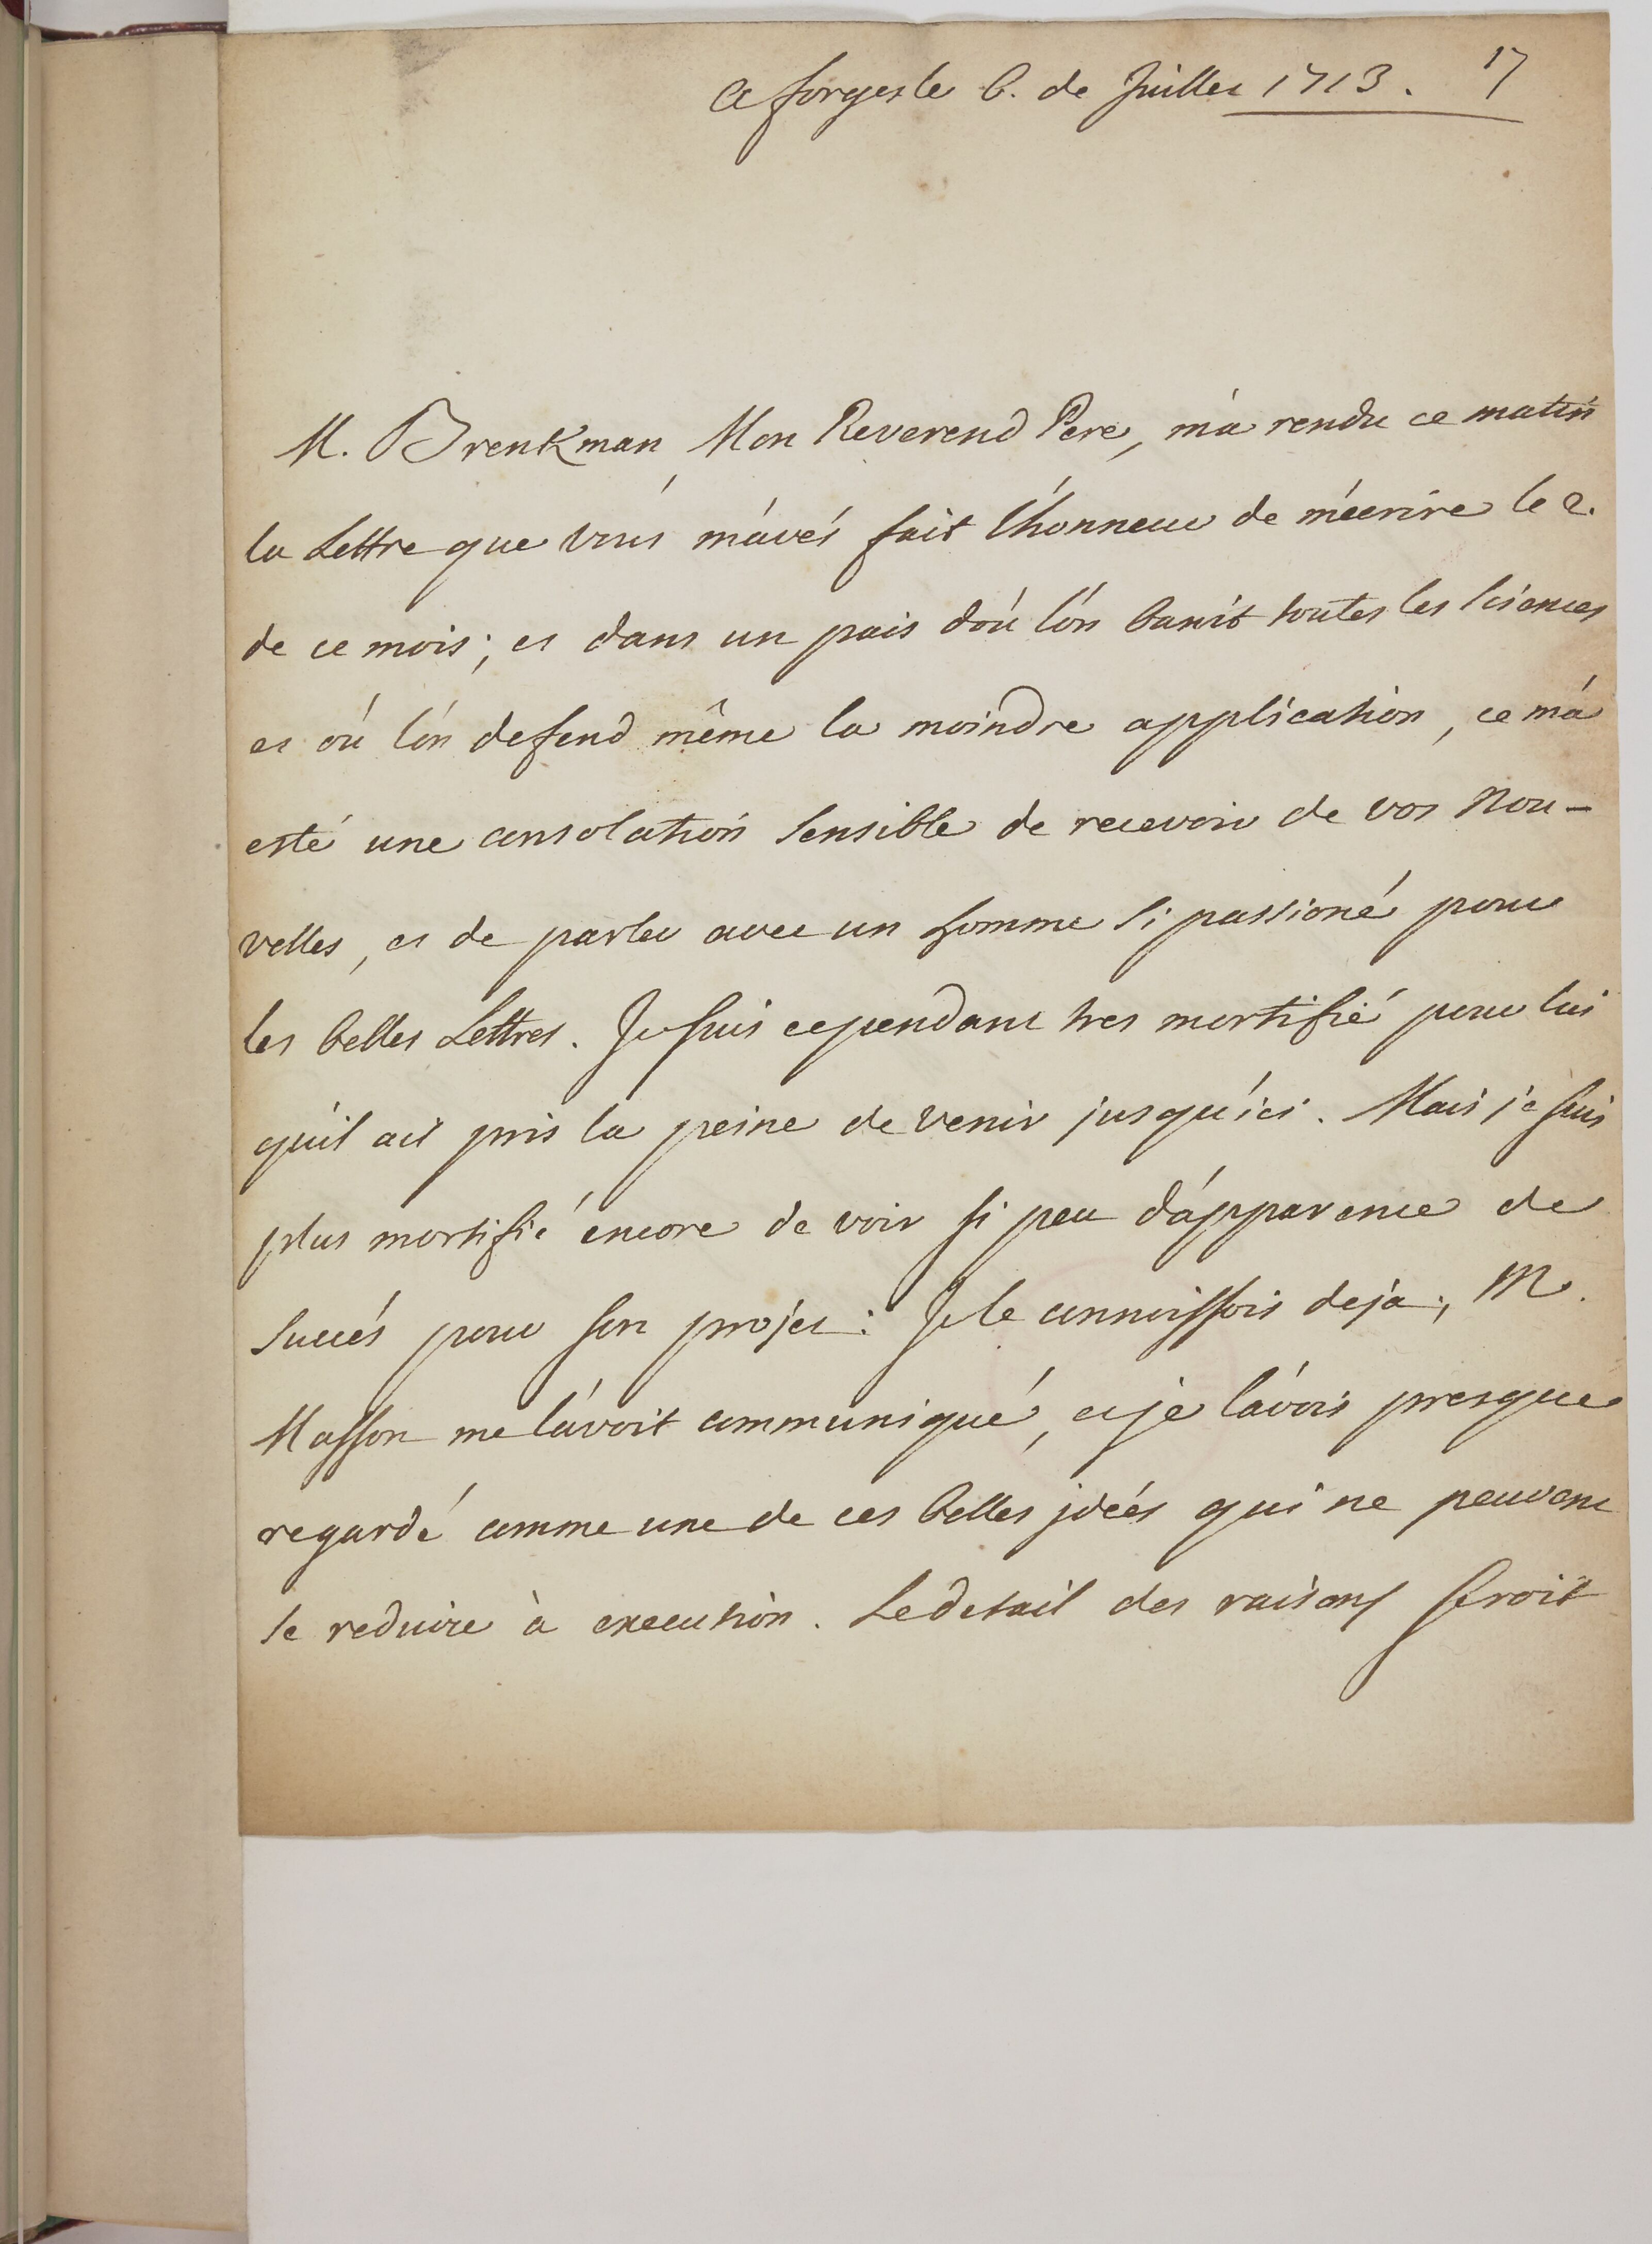 A forges le 6. de Juillet 1713. 17
M. Brenkman, Mon Reverend Pere, m'a rendu ce matin
la Lettre que vous m'avés fait l'honneur de m'écrire le 2.
de ce mois; et dans un païs d'où l'on banit toutes les sciences
et où l'on defend même la moindre application, ce m'a
esté une consolation sensible de recevoir de vos Nou-
velles, et de parler avec un homme si passioné pour
les belles Lettres. Je suis cependant tres mortifié pour lui
qu'il ait pris la peine de venir jusqu'ici. Mais je suis
plus mortifié encore de voir si peu d'apparence de
succés pour son projet: Je le connoissois deja; M.
Masson me l'avoit communiqué, et je l'avois presque
regardé comme une de ces belles idées qui ne peuvent
se reduire à execution. Le detail des raisons seroit